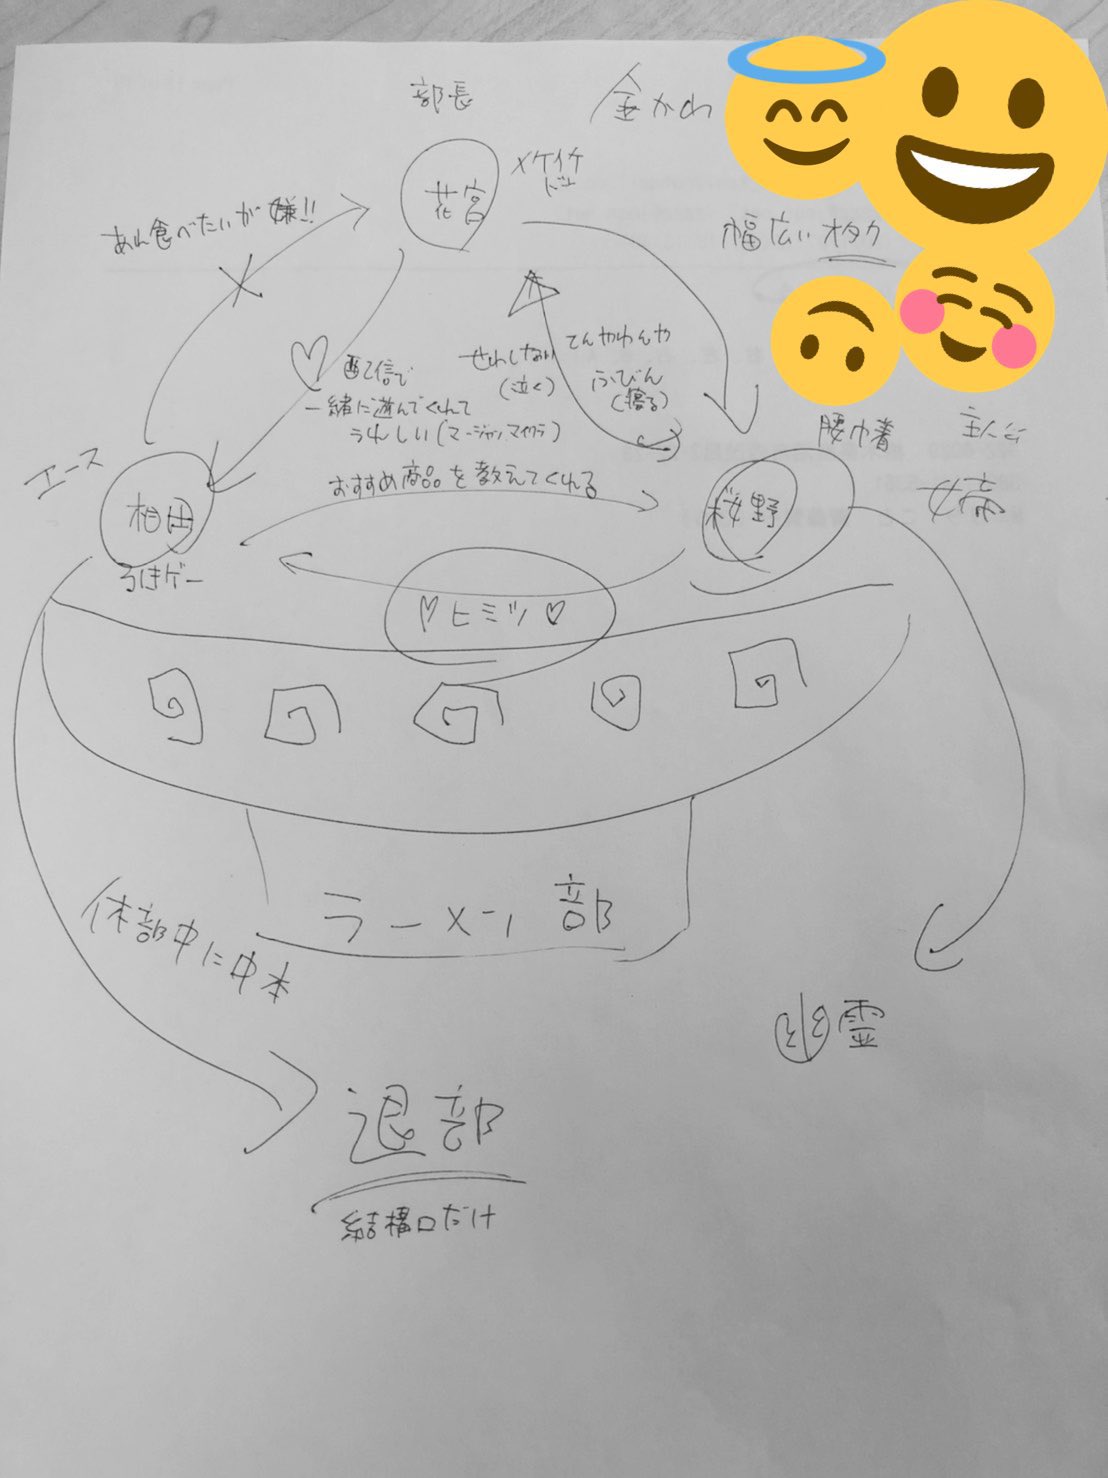 部長
金かわ
花宮
幅広いオタク
あん食べたいが嫌!!
てんやわんや
せわしない
(泣く)
ふびん
配信で
一緒に遊んでくれて
うれしい(マージャン、マイクラ)
エース
腰巾着
主人公
おすすめ商品を教えてくれる
相田
桜野
るきゲー
♡ヒミツ♡
ラーメン部
休部中に中本
幽霊
退部
結構口だけ